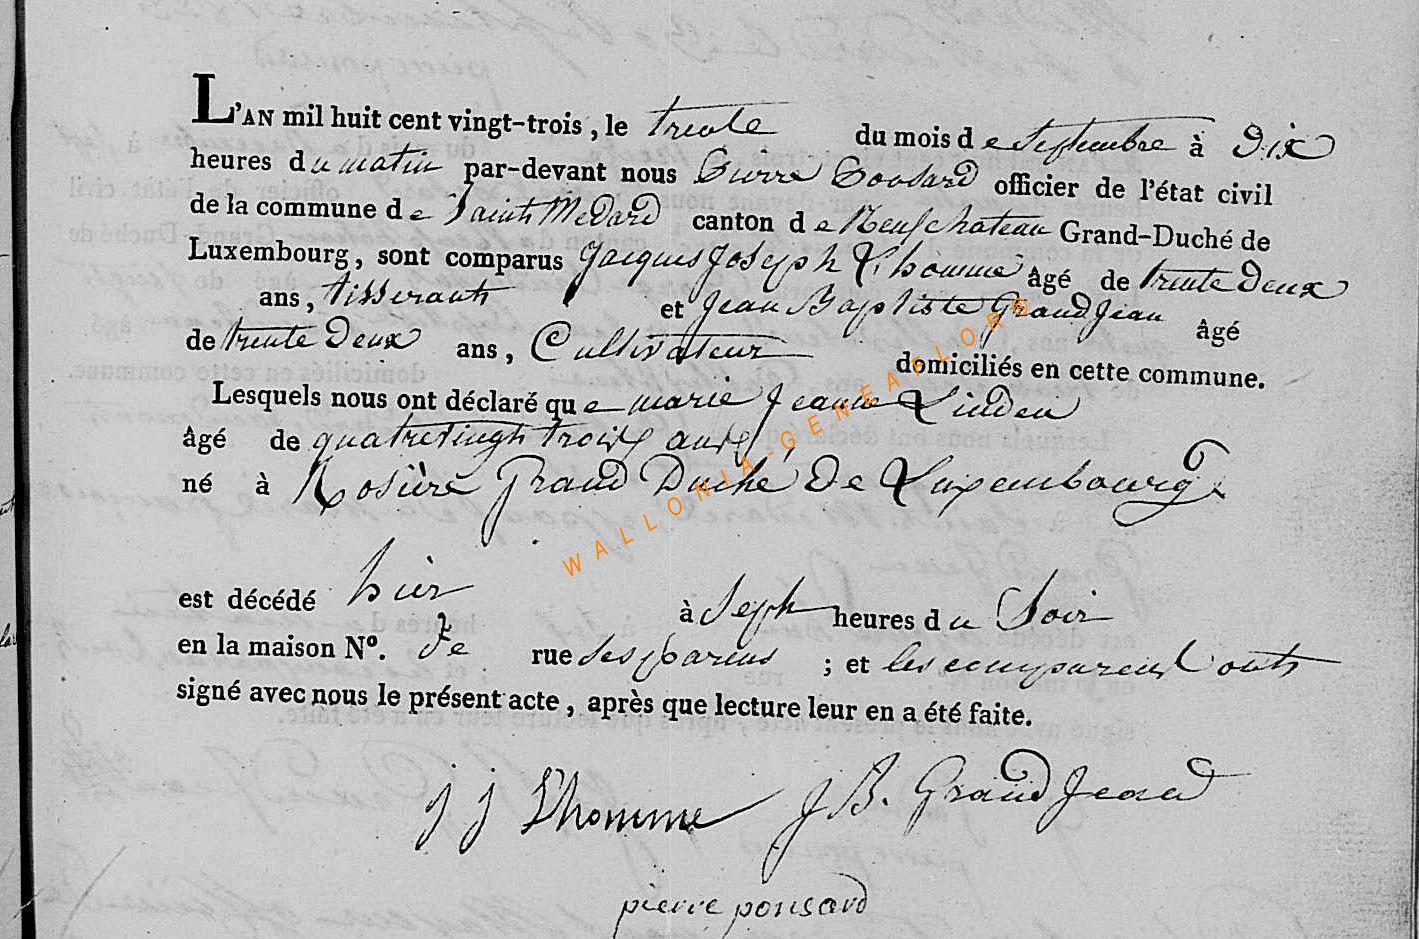 L'AN mil huit cent vingt-trois, le trente du mois de Septembre à Dix
heures du matin par-devant nous Pierre Ponsard officier de l'état civil
de la commune de Saint Medard canton de Neufchateau Grand-Duché de
Luxembourg, sont comparus Jacques Joseph L'homme âgé de trente Deux
ans, tisserant et Jean Baptiste GrandJean âgé
de trente Deux ans, Cultivateur domiciliés en cette commune.
Lesquels nous ont déclaré que marie Jeanne Linden
âgé de quatrevingt trois ans,
né à Rosière Grand Duché De Luxembourg
est décédé hier à Seph heures du Soir
en la maison N°. De rue ; et les comparent onts
signé avec nous le présent acte, après que lecture leur en a été faite.
j j L'homme J B. GrandJean
pierre ponsard
WALLONIA-GENEALOR®